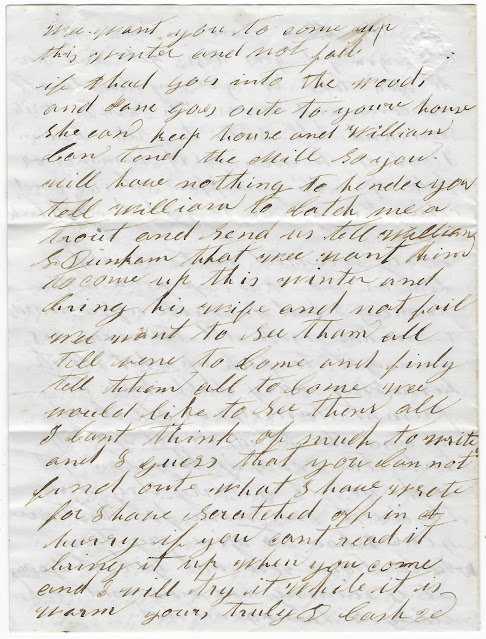 wee want you to come up
this winter and not fail
if thad goes into the woods
and Jane goes oute to youre house
she can keep house and William
Can tend the Mill so you
will have nothing to hender you
tell William to Catch me a
trout and send us tell William
S Dunham that wee want him
to come up this winter and
bring his wife and not fail
wee want to see them all
tell to Come and finly
tell them all to Come wee
would like to see them all
I Cant think of much to write
and I guess that you Can not
find oute what I have wrote
for I have scratched off in a
hurry if you cant read it
bring it up when you come
and I will try it while it is
warm yours truly